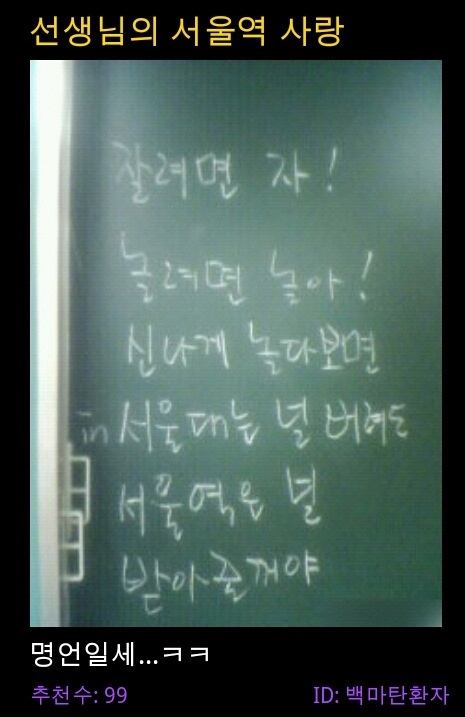 선생님의 서울역 사랑
잘려면 자!
놀려면 놀아!
신나게 놀다보면
in 서울대는 널 버려도
서울역은 널
받아줄꺼야
명언일세...ㅋㅋ
추천수: 99
ID: 백마탄환자